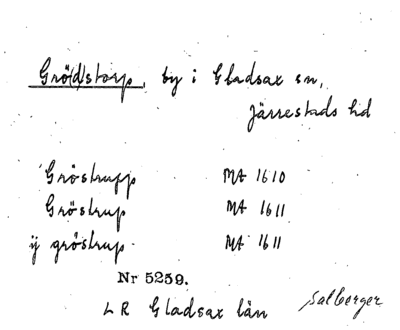 Grö(d)storp, by i Gladsax sn,
Järrestads hd
Gröstrupp Mt 1610
Gröstrup Mt 1611
ij gröstrup Mt 1611
Nr 5259.
LR Gladsax län Salberger